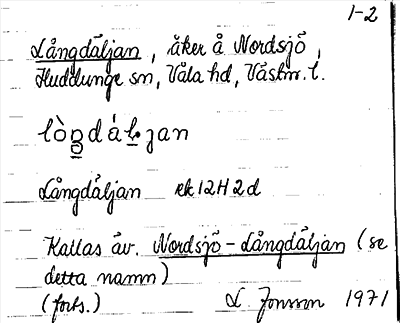 1-2
Långdäljan, åker å Nordsjö,
Huddunge sn, Våla hd, Västm. l.
lòŋdáḷjan
Långdäljan ek 12H2d
Kallas äv. Nordsjö-Långdäljan (se
detta namn)
(forts.) L. Jonsson 1971